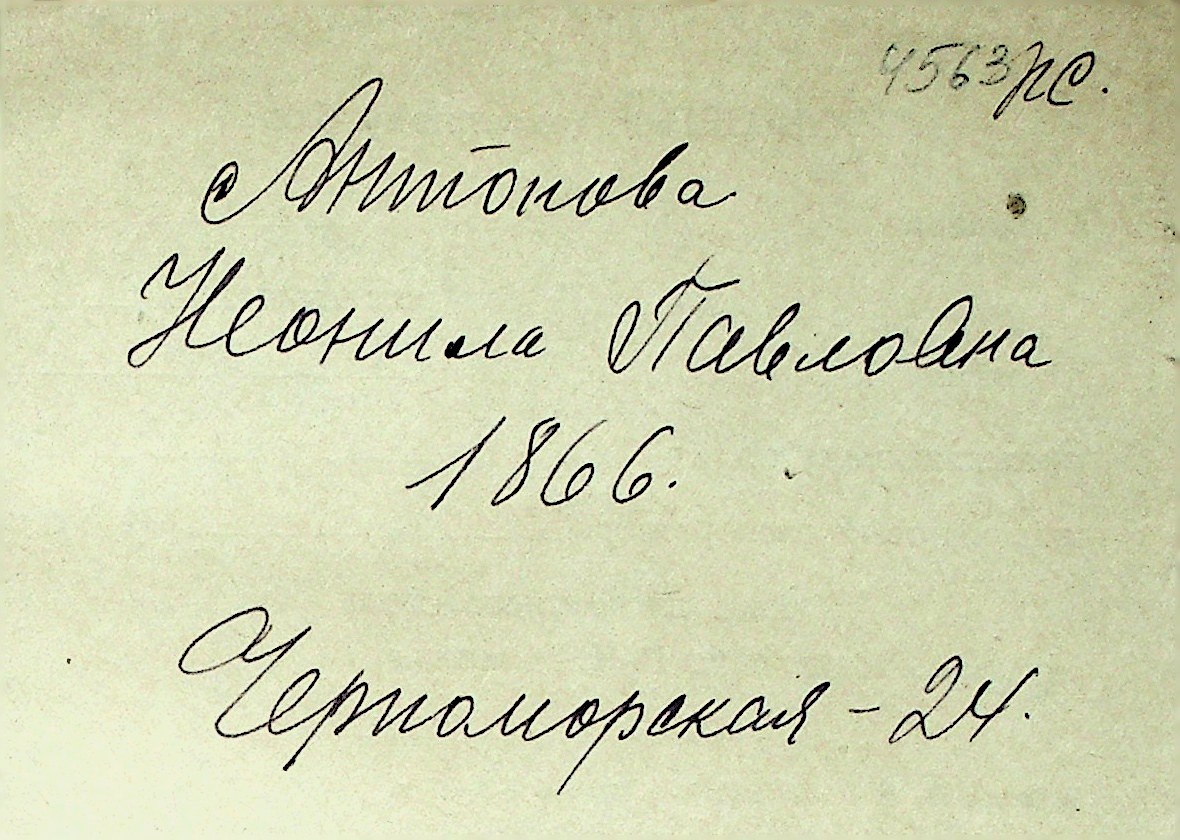 4563 рс.
Антонова
Неонила Павловна
1866.
Черноморская - 24.